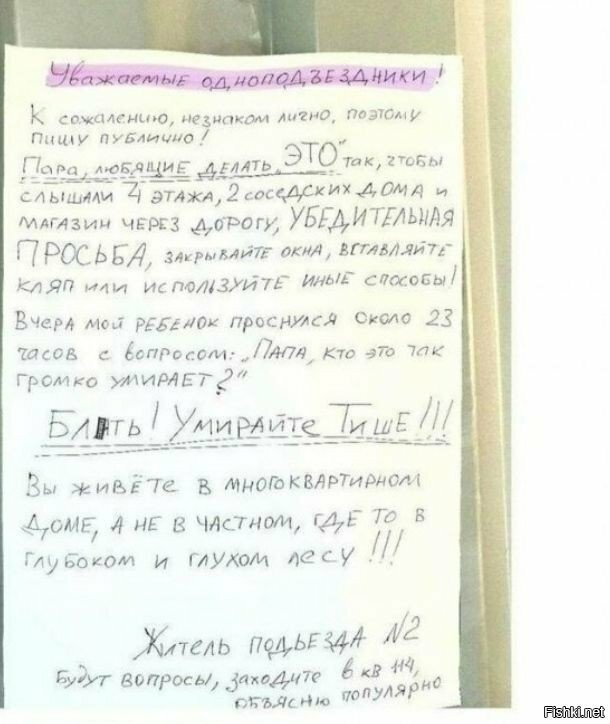 Уважаемые одноподъездники!
К сожалению, незнаком лично, поэтому
пишу публично!
Пара, любящие делать „ЭТО" так, чтобы
слышали 4 этажа, 2 соседских дома и
магазин через дорогу, УБЕДИТЕЛЬНАЯ
ПРОСЬБА, закрывайте окна, вставляйте
кляп или используйте иные способы!
Вчера мой ребёнок проснулся около 23
часов с вопросом: „Папа, кто это так
громко умирает?"
Бл ть! Умирайте Тише!!!
Вы живёте в многоквартирном
доме, а не в частном, где то в
глубоком и глухом лесу!!!
Житель подьезда №2
Будут вопросы, заходите в кв 114,
объясню популярно
Fishki.net